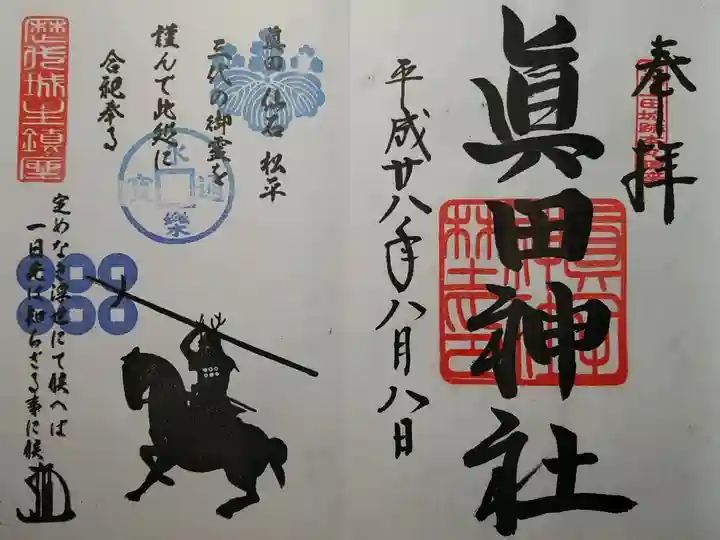 奉拝
眞田神社
平成廿八年八月八日
眞田 仙石 松平
三代の御霊を
謹んで此処に
合祀奉る
永樂通寳
歴代城主鎮座
定めなき浮世にて候へば
一日先は知らざる事に候